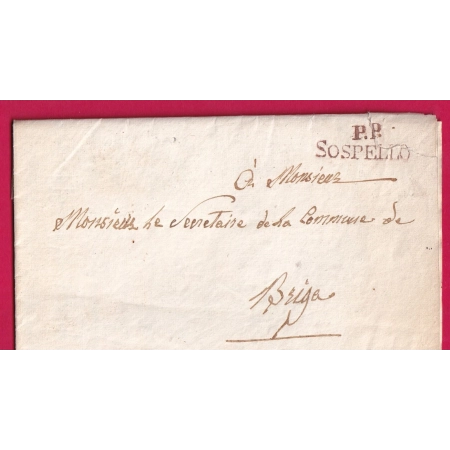 P.P.
SOSPELLO
à Monsieur
Monsieur le Secretaire de la Commune de
Briga